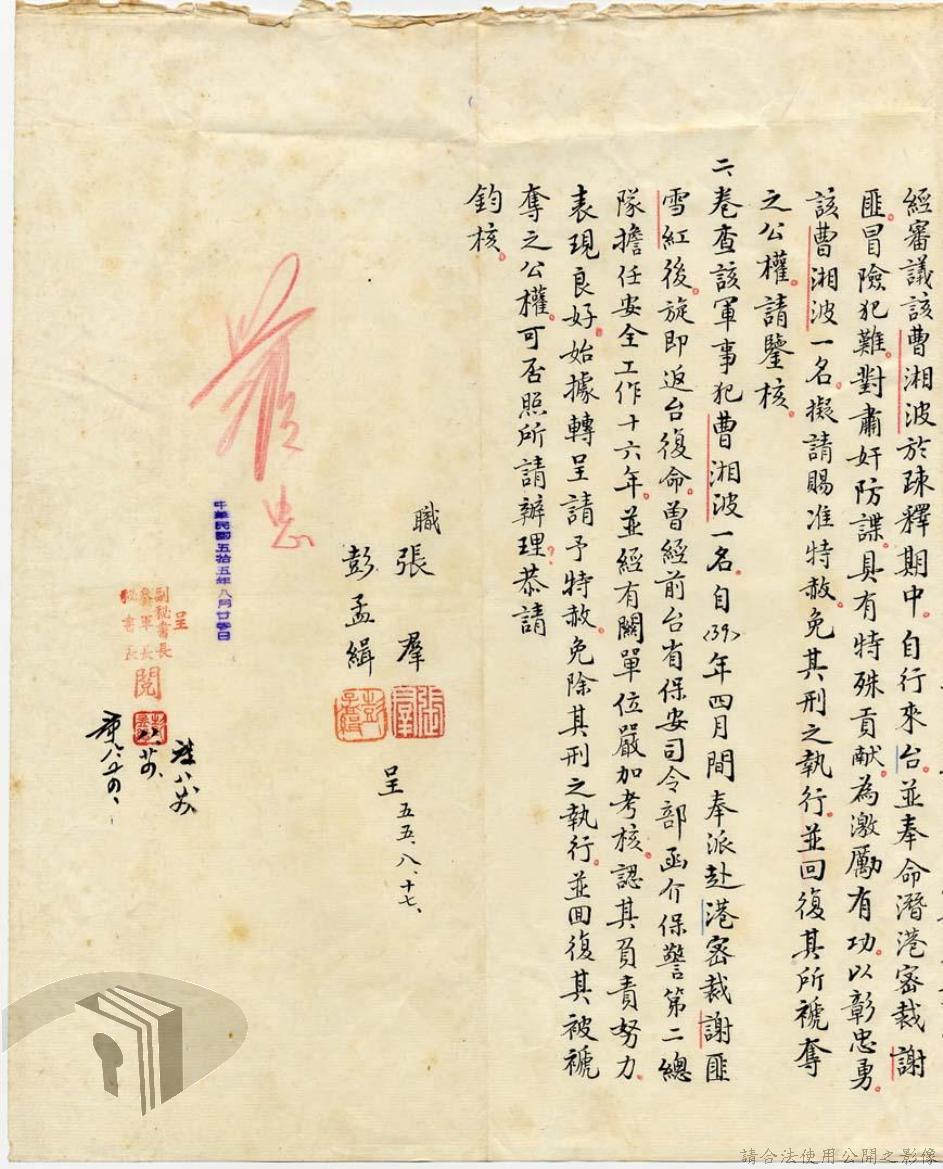 經審議該曹湘波於疎釋期中。自行來台。並奉命潛港密裁謝
匪。冒險犯難。對肅奸防諜。具有特殊貢献。為激勵有功。以彰忠勇。
該曹湘波一名。擬請賜准特赦。免其刑之執行。並回復其所褫奪
之公權。請鑒核。
二、卷查該軍事犯曹湘波一名。自(39)年四月間奉派赴港密裁謝匪
雪紅後。旋即返台復命。曾經前台省保安司令部函介保警第二總
隊擔任安全工作十六年。並經有關單位嚴加考核。認其負責努力。
表現良好。始據轉呈請予特赦。免除其刑之執行。並回復其被褫
奪之公權。可否照所請辦理？恭請
鈞核。
職張羣
彭孟緝
呈五五、八、十七、
中華民國五拾五年八月廿零日
呈
副秘書長
參軍長
秘書長
閱
請合法使用公開之影像